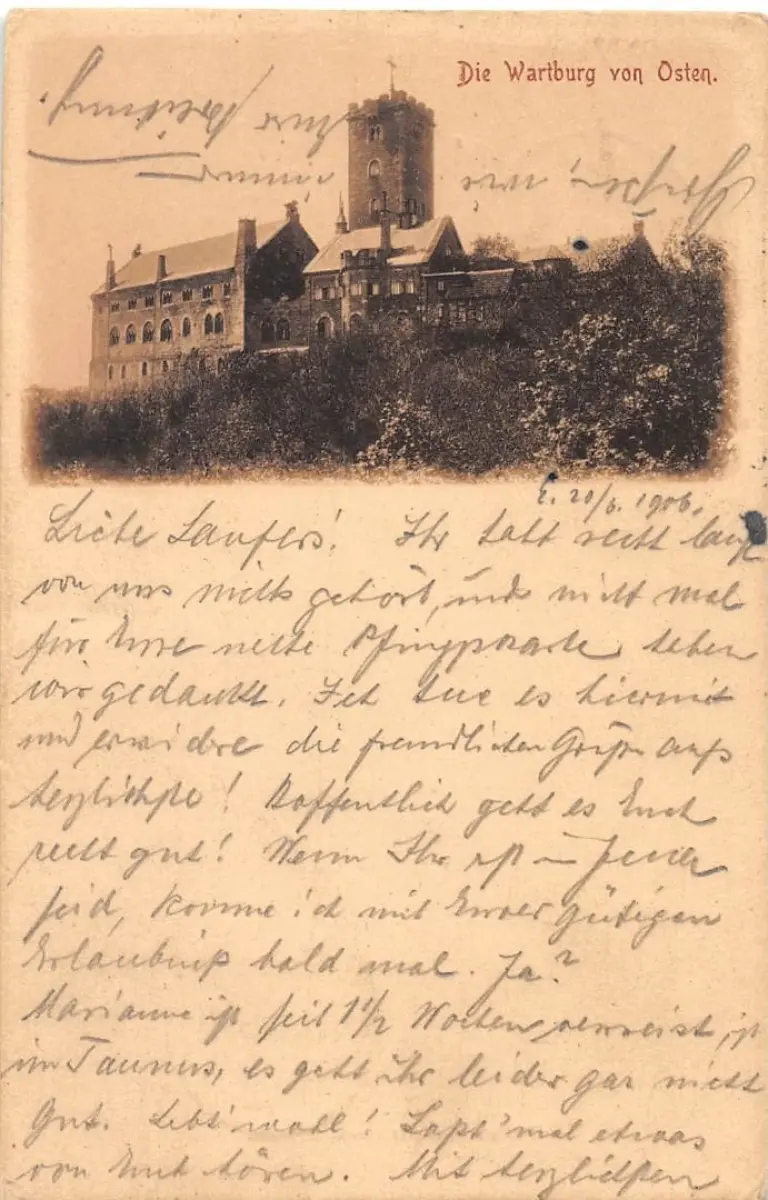 Die Wartburg von Osten.
E. 20/6. 1906.
Liebe Laufers! Ihr habt recht lange
von uns nichts gehört, und nicht mal
für Eure nette Pfingstkarte haben
wir gedankt. Ich tue es hiermit
und erwidere die freundlichen Grüße aufs
herzlichste! Hoffentlich geht es Euch
recht gut! Wenn Ihr erst in Jena
seid, komme ich mit Eurer gütigen
Erlaubniß bald mal. Ja?
Marianne ist seit 1 1/2 Wochen verreist, ist
im Taunus, es geht ihr leider gar nicht
gut. Lebt wohl! Laßt mal etwas
von Euch hören. Mit herzlichsten
Eure